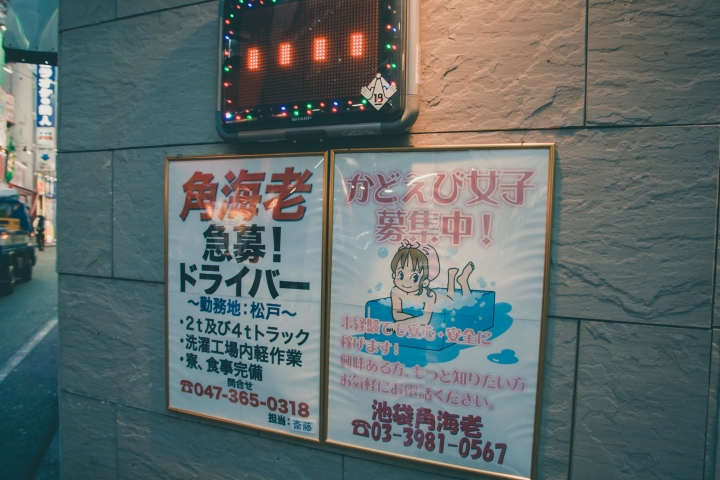 18
SHARP
角海老
急募!
ドライバー
～勤務地:松戸～
・2t及び4tトラック
・洗濯工場内軽作業
・寮、食事完備
問合せ
☎047-365-0318
担当:斎藤
かどえび女子
募集中!
未経験でも安心・安全に
稼げます!
興味ある方、もっと知りたい方
お気軽にお電話ください。
池袋角海老
☎03-3981-0567